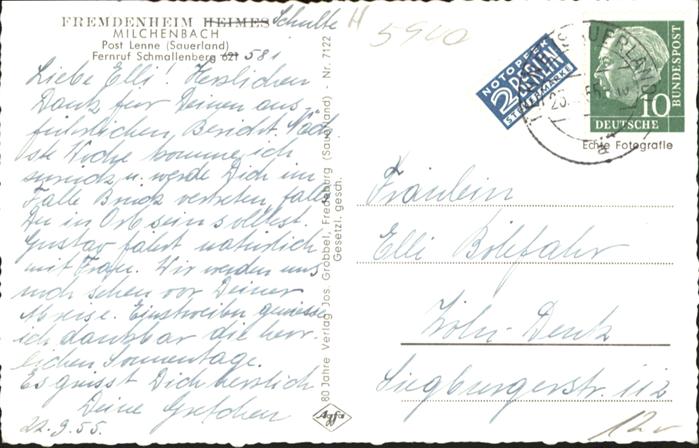 FREMDENHEIM HEIMES Schulte H
MILCHENBACH
Post Lenne (Sauerland)
Fernruf Schmallenberg 621 581
Liebe Elli! Herzlichen
Dank für Deinen aus-
führlichen Bericht. Näch-
ste Woche komme ich
zurück u. werde Dich im
Falle Bruck vertreten, falls
Du in Orb sein solltest.
Gustav fährt natürlich
mit Frau. Wir werden uns
noch sehen vor Deiner
Abreise. Einstweilen geniesse
ich dankbar die herr-
lichen Sonnentage.
Es grüsst Dich herzlich
Deine Gretchen
22.9.55.
80 Jahre Verlag Jos. Grobbel, Fredeburg (Sauerland) - Nr. 7122
Gesetzl. gesch.
Agfa
5900
NOTOPFER
2 BERLIN
STEUERMARKE
SAUERLAND
10
DEUTSCHE
BUNDESPOST
Echte Fotografie
Fräulein
Elli
Köln-Deutz
Siegburgerstr. 112
12